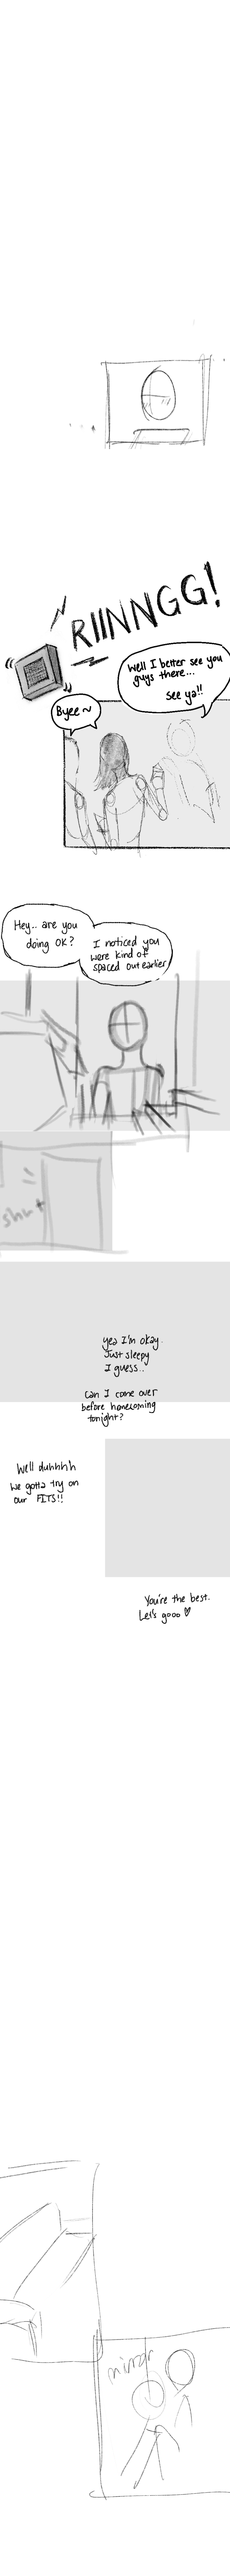 RIINNGG!
Well I better see you
guys there...
see ya!!
Byee~
Hey.. are you
doing OK?
I noticed you
were kind of
spaced out earlier
shut
yea I'm okay.
Just sleepy
I guess..
Can I come over
before homecoming
tonight?
Well duhhhh
we gotta try on
our FITS!!
You're the best.
Let's gooo ♡
mirror